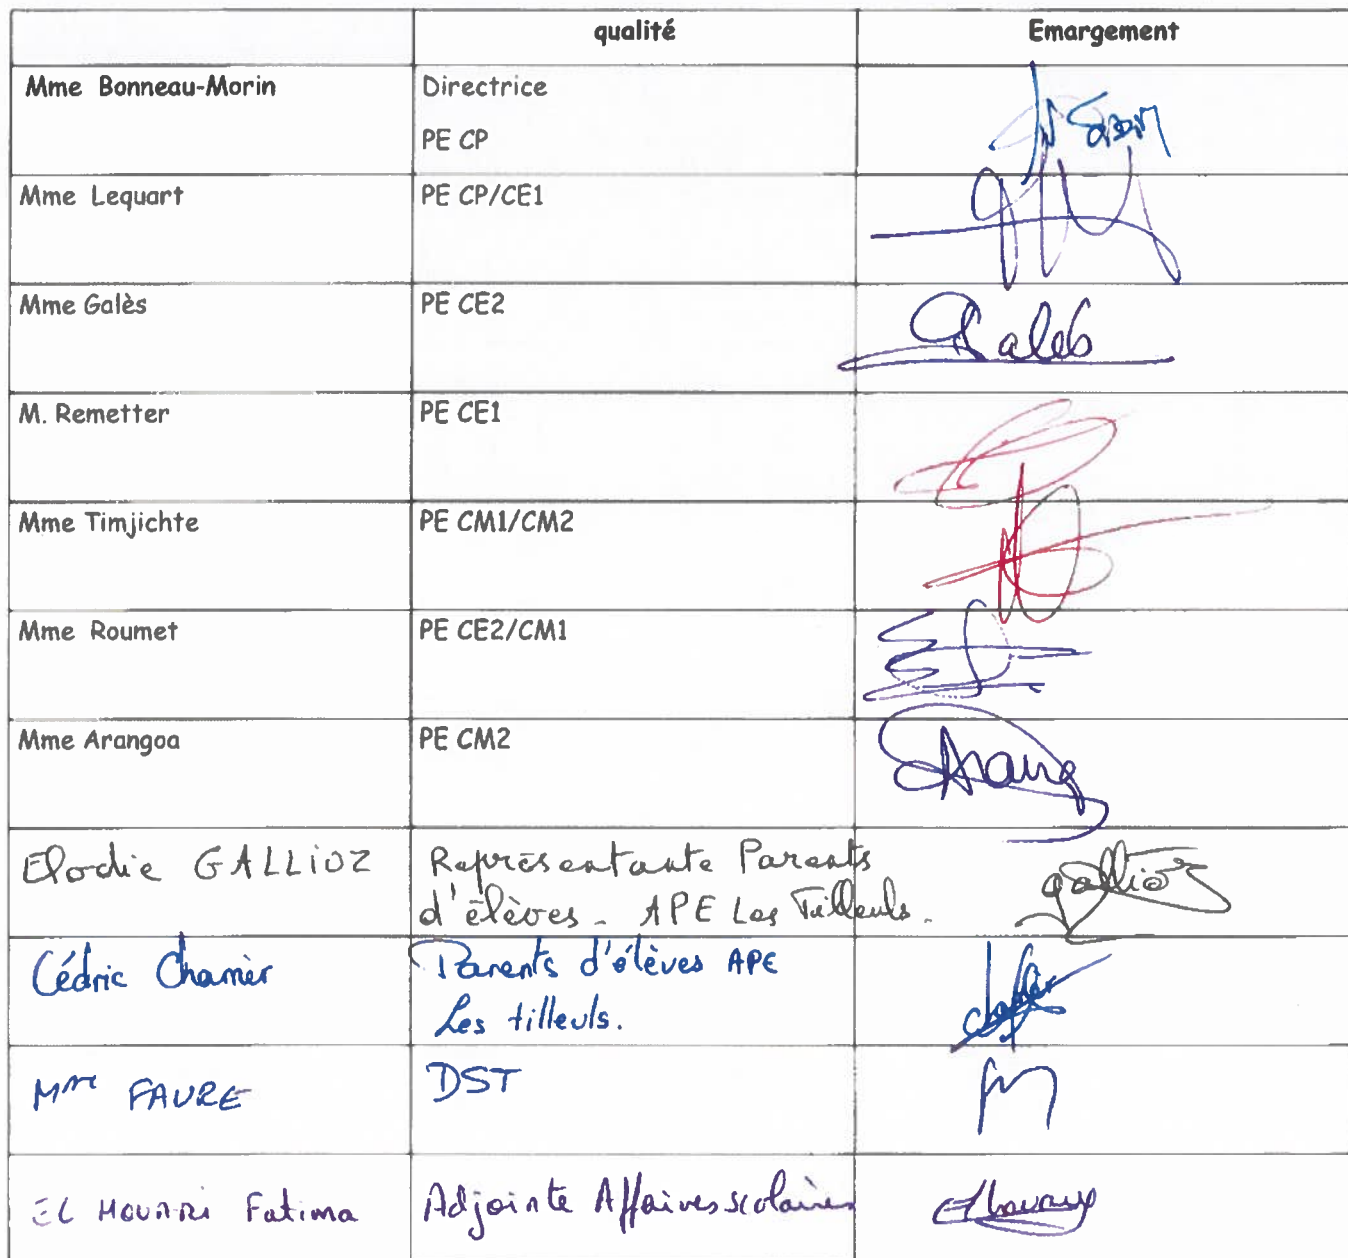 qualité Emargement
Mme Bonneau-Morin Directrice
PE CP
Mme Lequart PE CP/CE1
Mme Galès PE CE2
M. Remetter PE CE1
Mme Timjichte PE CM1/CM2
Mme Roumet PE CE2/CM1
Mme Arangoa PE CM2
Elodie GALLIOZ Représentante Parents
d'élèves - APE Les Tilleuls.
gallioz
Cédric Chamier Parents d'élèves APE
Les tilleuls.
Mme FAURE DST
EL HOURRI Fatima Adjointe Affaires scolaires